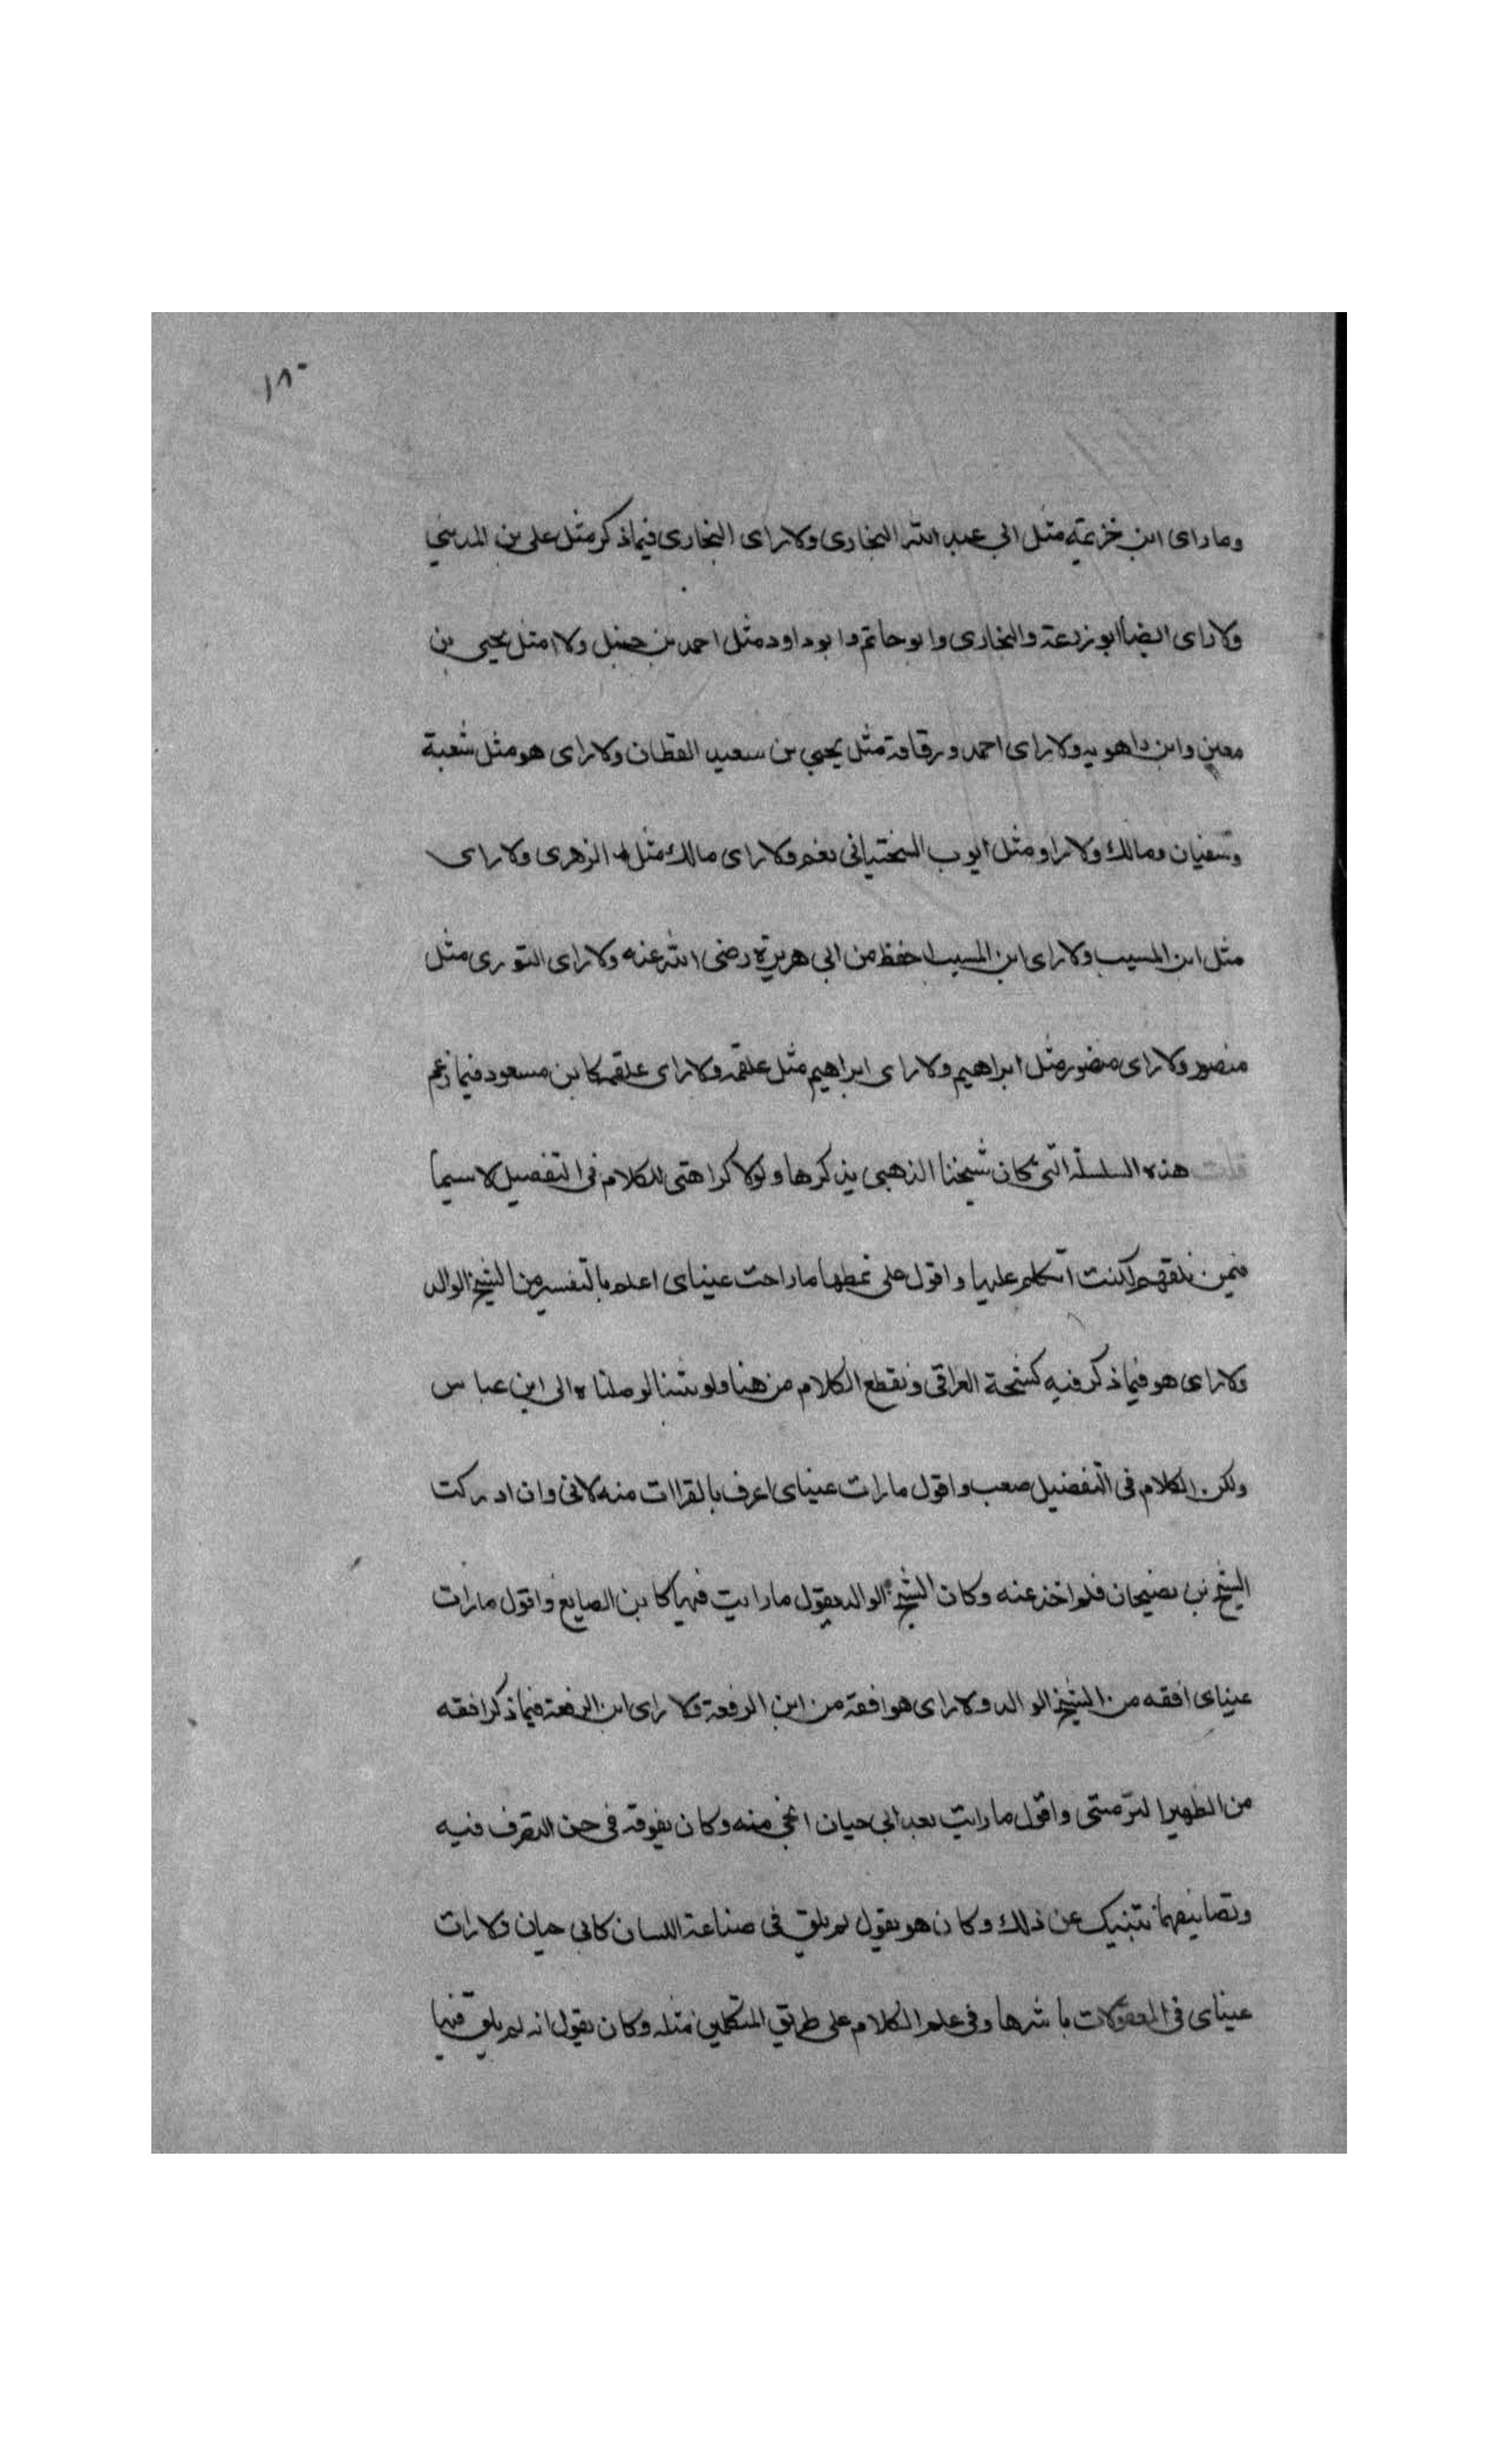 ١٨٠
وما راى ابن خزيمة مثل ابي عبد الله البخارى ولا راى البخارى فيما ذكر مثل على بن المديني
ولا راى ايضا ابو زرعة والبخارى وابو حاتم وابو داود مثل احمد بن حنبل ولا مثل يحيى بن
معين وابن راهويه ولا راى احمد ورفاقه مثل يحيى بن سعيد القطان ولا راى هو مثل شعبة
وسفيان ومالك ولا راو مثل ايوب السختيانى نعم ولا راى مالك مثل الزهرى ولا راى
مثل ابن المسيب ولا راى ابن المسيب احفظ من ابى هريرة رضى الله عنه ولا راى الثورى مثل
منصور ولا راى منصور مثل ابراهيم ولا راى ابراهيم مثل علقمة ولا راى علقمة كابن مسعود فيما زعم
قلت هذه السلسلة التى كان شيخنا الذهبى يذكرها ولولا كراهتى للكلام فى التفضيل لا سيما
فيمن لكنت اتكلم عليها واقول على نمطها ما راحت عيناى اعلم بالتفسير من الشيخ الوالد
ولا راى هو فيما ذكر فيه كشيخه العراقى ونقطع الكلام من هنا ولو شئنا لوصلناه الى ابن عباس
ولكن الكلام فى التفضيل صعب واقول ما رات عيناى اعرف بالقراات منه لانى وان ادركت
الشيخ بن بضيحان فلم اخذ عنه وكان الشيخ الوالد يقول ما رايت فيها كابن الصايغ واقول ما رات
عيناى افقه من الشيخ الوالد ولا راى هو افقه من ابن الرفعة ولا راى ابن الرفعة فيما ذكر افقه
من الظهير التزمنتى واقول ما رايت بعد ابى حيان انحى منه وكان يفوقه فى حسن التصرف فيه
وتصانيفهما تنبيك عن ذلك وكان هو يقول لم يلق فى صناعة اللسان كابى حيان ولا رات
عيناى فى المعقولات باشرها وفى علم الكلام على طريق المتكلمين مثله وكان يقول انه لم يلق فيها